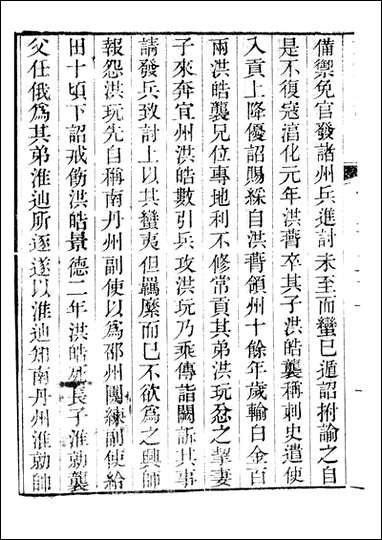 備禦免官發諸州兵進討未至而蠻已遁詔拊諭之自
是不復寇淯化元年洪䓘卒其子洪皓襲稱刺史遣使
入貢上降優詔賜綵自洪䓘領州十餘年歲輸白金百
兩洪皓襲兄位專地利不修常貢其弟洪玩忿之挈妻
子來奔宜州洪皓數引兵攻洪玩乃乘傳詣闕訴其事
請發兵致討上以其蠻夷但羈縻而已不欲爲之興師
報怨洪玩先自稱南丹州副使以爲邵州團練副使給
田十頃下詔戒飭洪皓景德二年洪皓死長子淮勍襲
父任俄爲其弟淮迪所逐遂以淮迪知南丹州淮勍帥